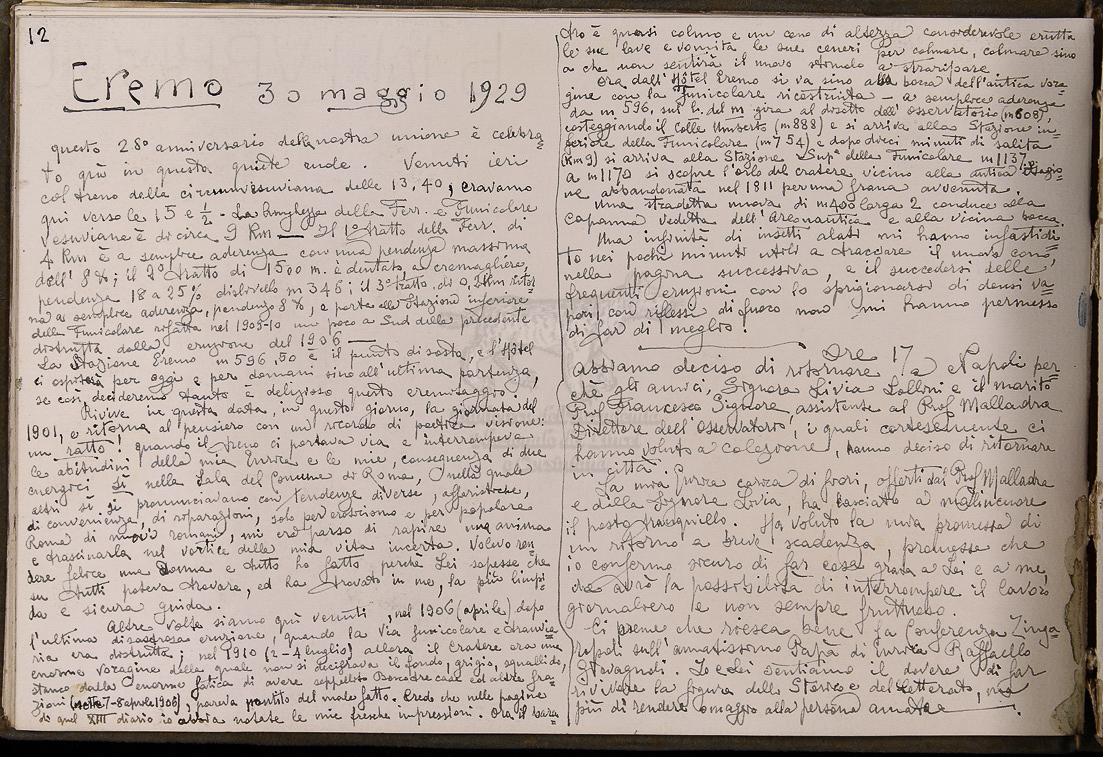 12
Eremo 30 maggio 1929
questo 28° anniversario della nostra unione è celebra=
to qui in questa quiete rude. Venuti ieri
col treno della circumvesuviana delle 13,40, eravamo
qui verso le 15 e ½ - La lunghezza della Ferr. e Funicolare
Vesuviana è di circa 9 Km — Il 1° tratto della Ferr. di
4 Km è a semplice aderenza con una pendenza massima
dell'8%; il 2° tratto di 1500 m. è dentato, a cremagliera,
pendenza 18 a 25% dislivello m 346; il 3° tratto, di
na a semplice aderenza, pendenza 8%, e porta alla Stazione inferiore
della Funicolare rifatta nel 1909-10 un poco a Sud della precedente
distrutta dalla eruzione del 1906 —
La Stazione Eremo m 596,50 è il punto di sosta, e l'Hôtel
ci ospiterà per oggi e per domani sino all'ultima partenza,
se così decideremo tanto è delizioso questo eremitaggio!
Rivive in questa data, in questo giorno, la giornata del
1901, e ritorna al pensiero con un ricordo di poetica visione:
un ratto! quando il treno ci portava via e interrompeva
le abitudini della mia Enrica e le mie, conseguenza di due
energici Sì nella Sala del Comune di Roma, nella quale
altri sì si pronunciavano con tendenze diverse, affaristiche,
di convenienza, di riparazioni, solo per erotismo e per popolare
Roma di nuovi romani, mi era parso di rapire una anima
e trascinarla nel vortice della mia vita incerta. Volevo ren=
dere felice una Donna e tutto ho fatto perché Lei sapesse che
su tutti poteva trovare, ed ha trovato in me, la più limpi=
da e sicura guida.
Altre volte siamo qui venuti, nel 1906 (aprile) dopo
l'ultima disastrosa eruzione, quando la Via funicolare e tranvia=
ria era distrutta; nel 1910 (2-4 luglio) allora il Cratere era una
enorme voragine della quale non si decifrava il fondo, grigio, squallido,
stanco dalla enorme fatica di avere seppellito Boscotrecase ed altre fra=
zioni (notte 7-8 aprile 1906), pareva pentito del male fatto. Credo che nelle pagine
di quel XIII diario io abbia notate le mie fresche impressioni. Ora il bara=
tro è quasi colmo e un cono di altezza considerevole erutta
le sue lave e vomita le sue ceneri per colmare, colmare sino
a che non sentirà il nuovo stimolo a straripare.
Ora dall'Hôtel Eremo si va sino alla bocca dell'antica vora=
gine con la funicolare ricostruita - a semplice aderenza
da m 596, sul l. del m gira al disotto dell'osservatorio (m 608),
costeggiando il colle Umberto (m 888) e si arriva alla Stazione in=
feriore della Funicolare (m 754) e dopo dieci minuti di salita
(Km 9) si arriva alla Stazione Sup. della Funicolare m 1137,
a m 1170 si scopre l'orlo del cratere, vicino alla antica stazio=
ne abbandonata nel 1911 per una frana avvenuta.
Una stradetta nuova di m 400 larga 2 conduce alla
capanna vedetta dell'Areonautica e alla vicina bocca.
Una infinità di insetti alati mi hanno infastidi=
to nei pochi minuti utili a tracciare il nuovo cono,
nella pagina successiva, e il succedersi delle
frequenti eruzioni con lo sprigionarsi di densi va=
pori con riflessi di fuoco non mi hanno permesso
di far di meglio!
Ore 17
abbiamo deciso di ritornare a Napoli per=
chè gli amici, Signora Livia Lollini e il marito
Prof. Francesco Signore, assistente al Prof. Malladra
Direttore dell'Osservatorio, i quali cortesemente ci
hanno voluto a colazione, hanno deciso di ritornare
in città.
La mia Enrica carica di fiori, offerti dai Prof Malladra
e dalla Signora Livia, ha lasciato a malincuore
il posto tranquillo. Ha voluto la mia promessa di
un ritorno a breve scadenza, promessa che
io confermo sicuro di far cosa grata a Lei e a me,
che avrò la possibilità di interrompere il lavoro
giornaliero se non sempre fruttuoso.
Ci preme che riesca bene la Conferenza Zinga=
ropoli sull'amatissimo Papà di Enrica Raffaello
Giovagnoli. Io e lei sentiamo il dovere di far
rivivere la figura dello Storico e del letterato,
più di rendere omaggio alla persona amata.